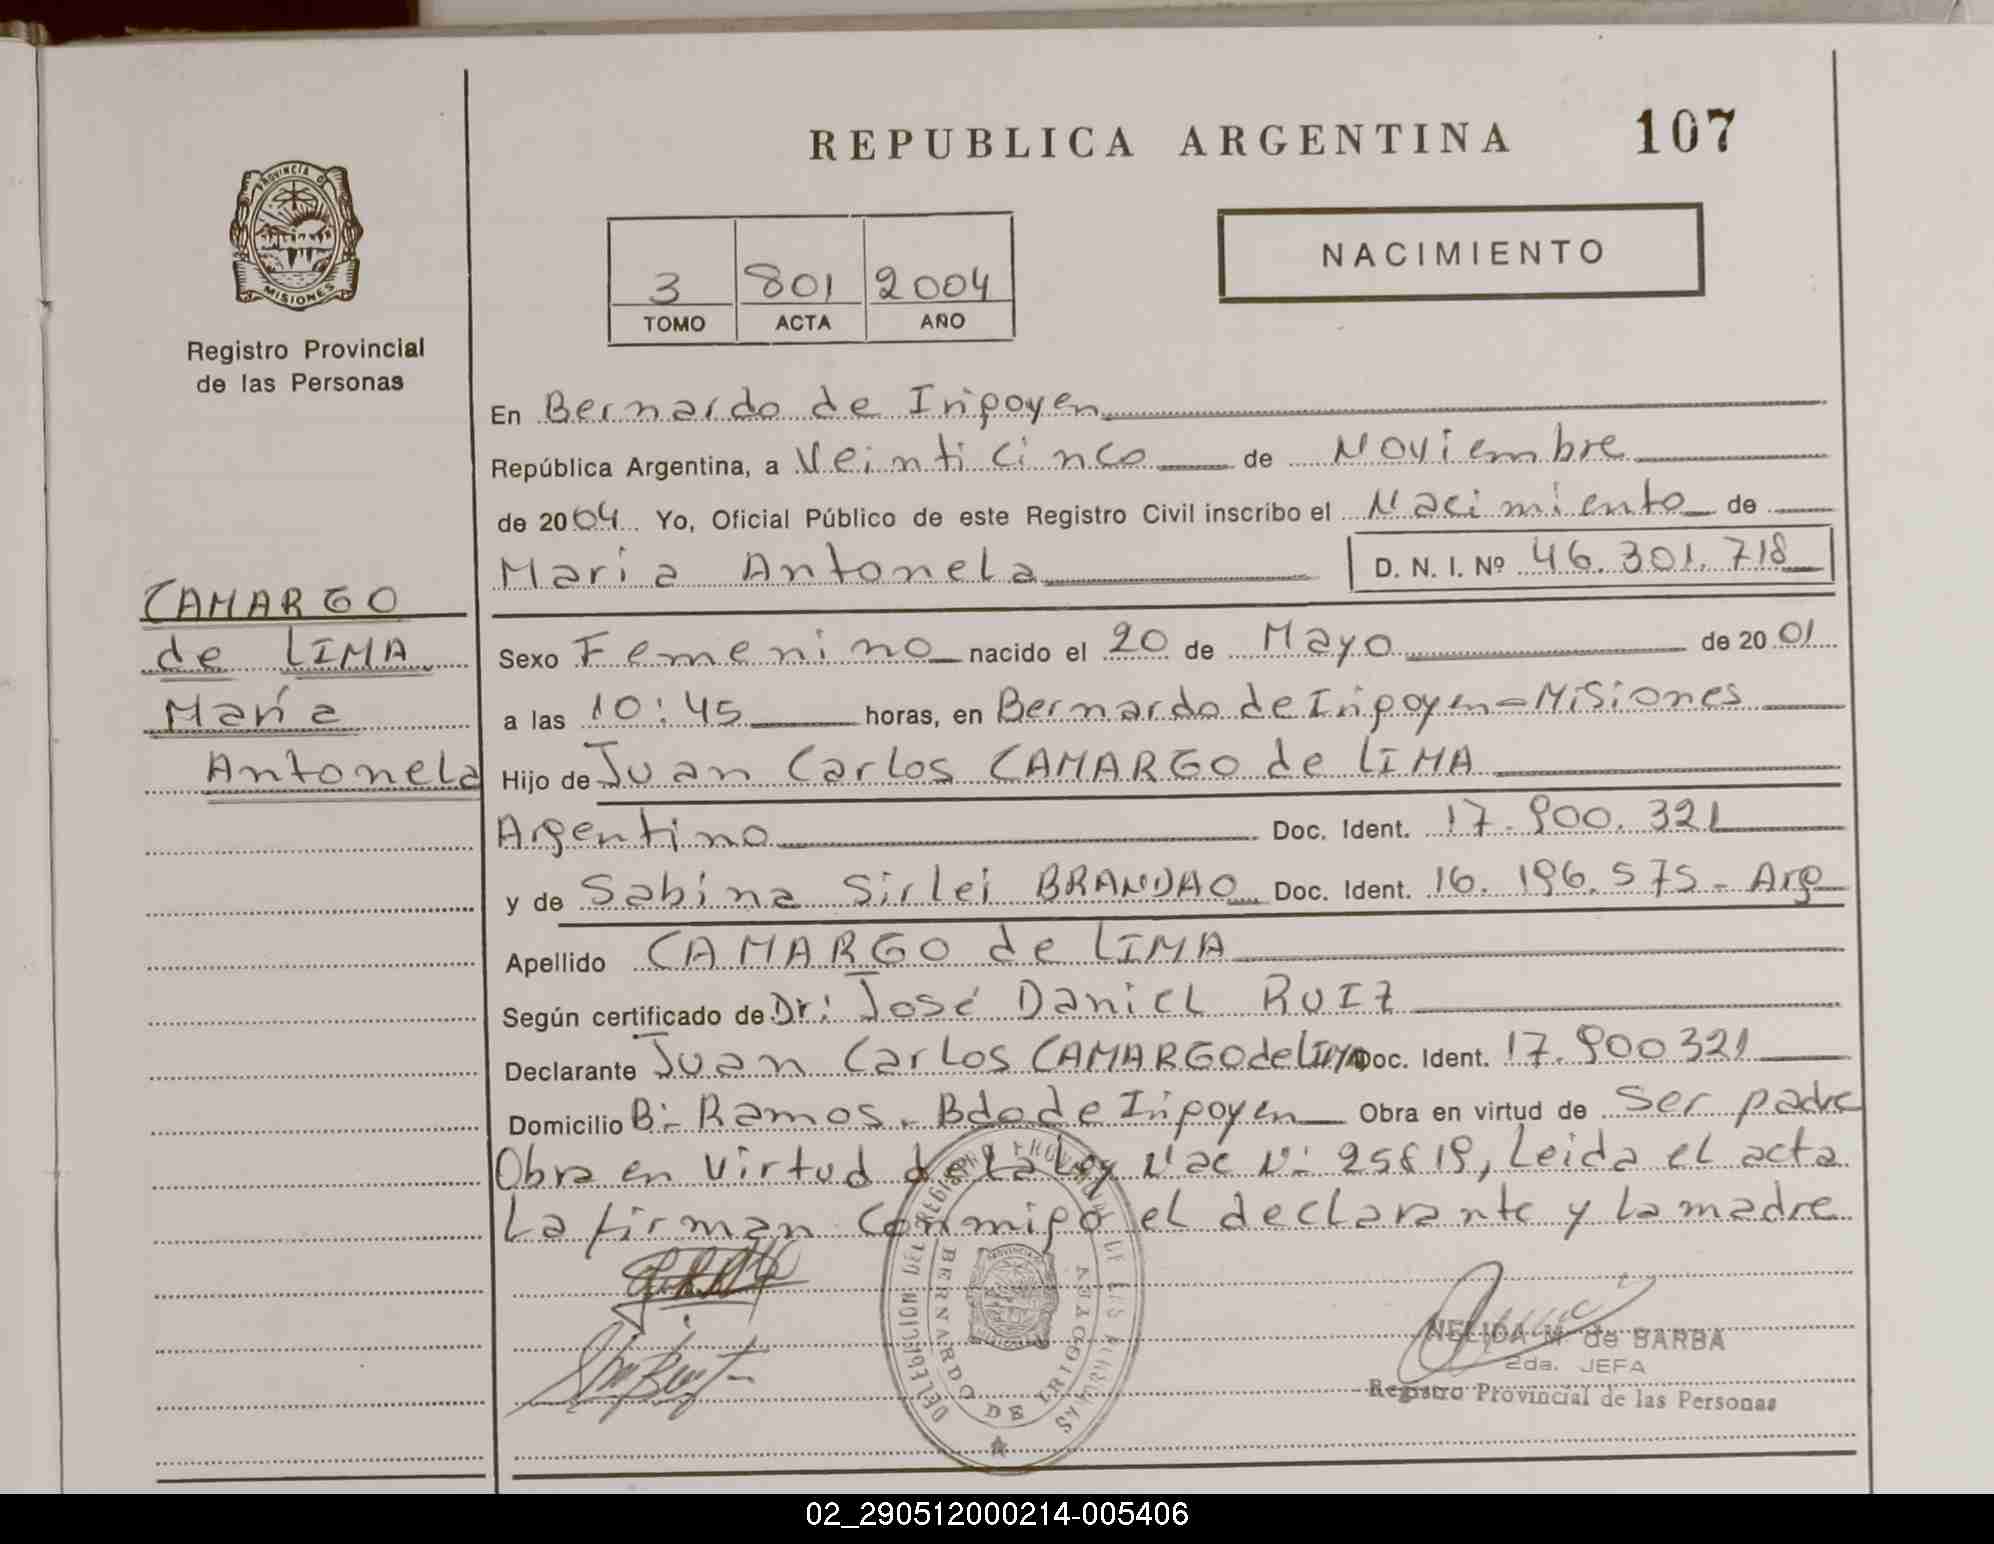 REPUBLICA ARGENTINA 107
PROVINCIA DE
MISIONES
Registro Provincial
de las Personas
NACIMIENTO
3 801 2004
TOMO ACTA AÑO
CAMARGO
de LIMA
María
Antonela
En Bernardo de Irigoyen
República Argentina, a Veinticinco de Noviembre
de 2004 Yo, Oficial Público de este Registro Civil inscribo el Nacimiento de
Maria Antonela D. N. I. Nº 46.301.718
Sexo Femenino nacido el 20 de Mayo de 2001
a las 10:45 horas, en Bernardo de Irigoyen - Misiones
Hijo de Juan Carlos CAMARGO de LIMA
Argentino Doc. Ident. 17.900.321
y de Sabina Sirlei BRANDAO Doc. Ident. 16.196.575 - Arg
Apellido CAMARGO de LIMA
Según certificado de Dr: José Daniel RUIZ
Declarante Juan Carlos CAMARGO de LIMA Doc. Ident. 17.900321
Domicilio B:- Ramos - Bdo de Irigoyen Obra en virtud de Ser padre
Obra en virtud de la Ley Nac N: 25819, Leida el acta
La firman conmigo el declarante y la madre
DELEGACION DEL REGISTRO PROVINCIAL DE LAS PERSONAS
BERNARDO DE IRIGOYEN
NELIDA M. de BARBA
2da. JEFA
Registro Provincial de las Personas
02_290512000214-005406